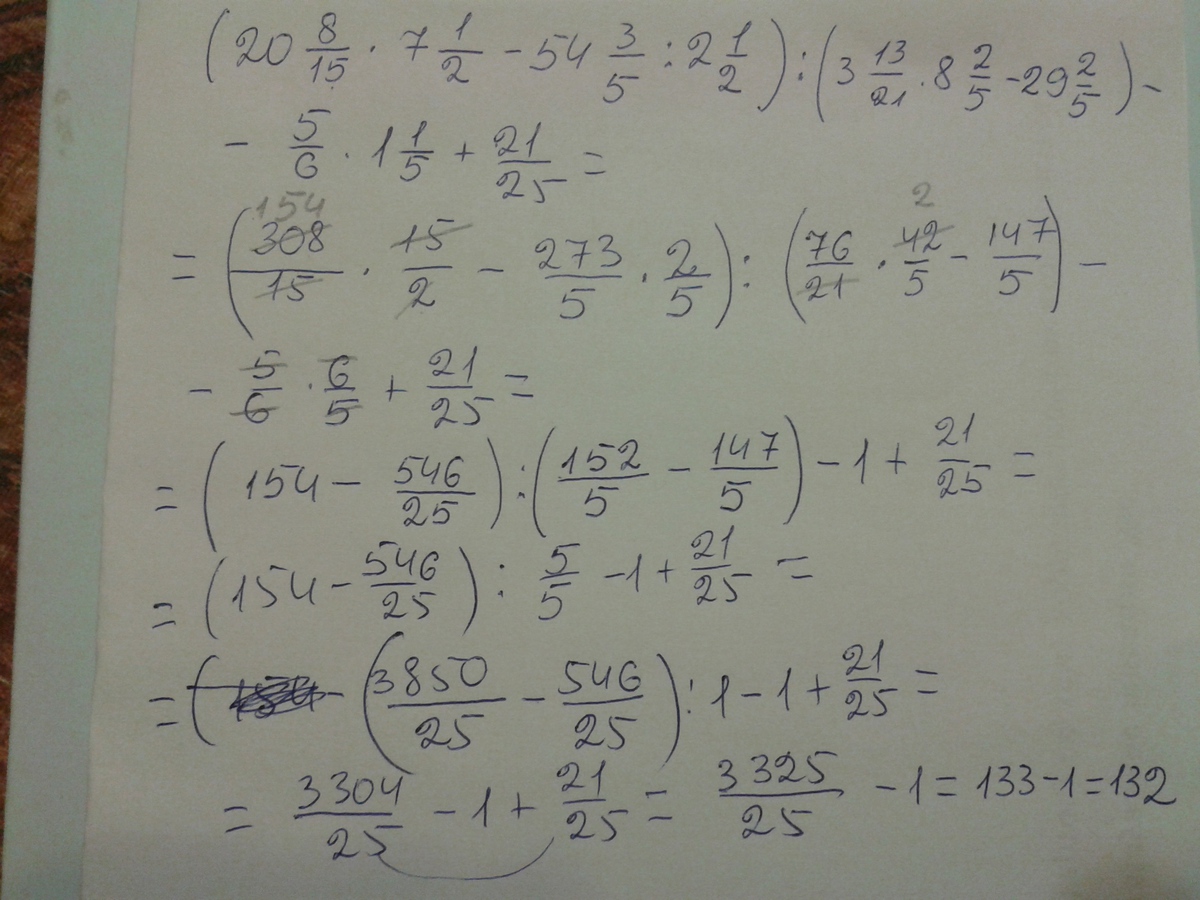 (20 8/15 · 7 1/2 - 54 3/5 : 2 1/2) : (3 13/21 · 8 2/5 - 29 2/5) -
- 5/6 · 1 1/5 + 21/25 =
154 2
= (308/15 · 15/2 - 273/5 · 2/5) : (76/21 · 42/5 - 147/5) -
- 5/6 · 6/5 + 21/25 =
= (154 - 546/25) : (152/5 - 147/5) - 1 + 21/25 =
= (154 - 546/25) : 5/5 - 1 + 21/25 =
= ( - (3850/25 - 546/25) : 1 - 1 + 21/25 =
= 3304/25 - 1 + 21/25 = 3325/25 - 1 = 133 - 1 = 132